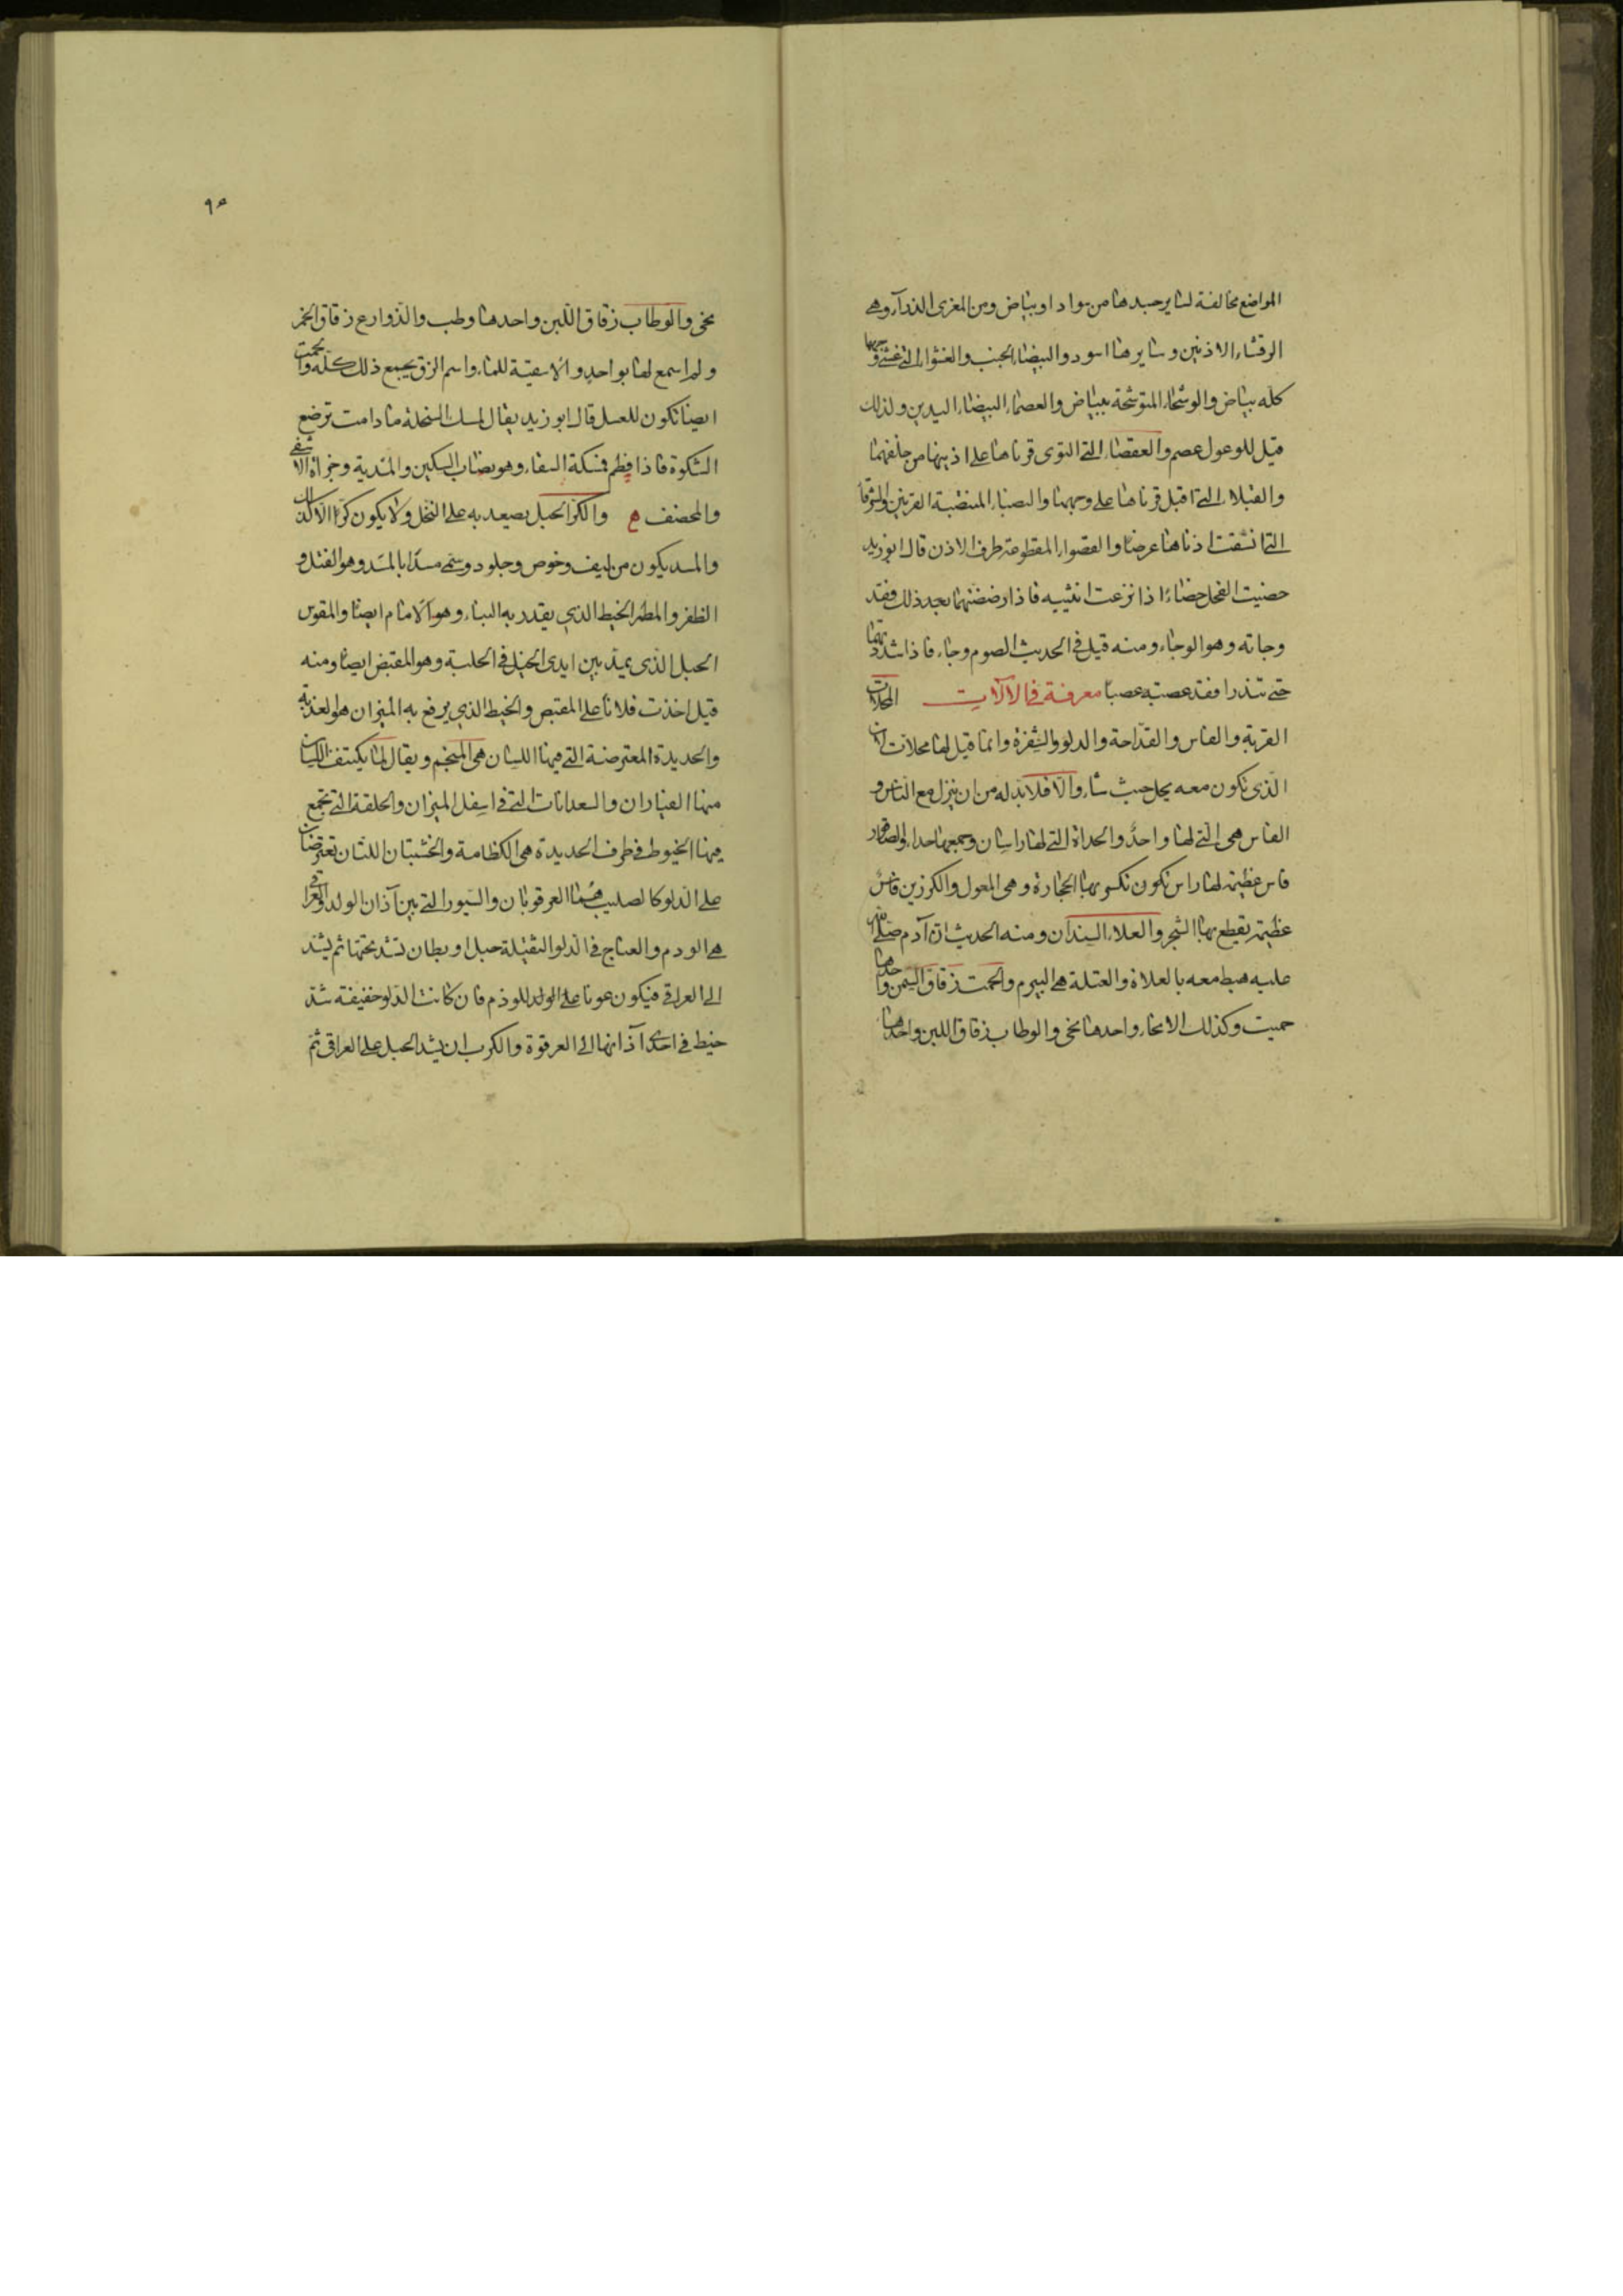 المواضع مخالفة لسا يرجسدها من سواد او بياض ومن المعزى الذرآء وهى
الرقشاء الاذنين وسايرها اسود والبيضاء الجنب والغشواء التى غشى وجهها
كله بياض والوشحاء المتوشحة ببياض والعصماء البيضاء اليدين ولذلك
قيل للوعول عصم والعقصاء التى التوى قرناها على اذنيها من خلفهما
والقبلاء التى اقبل قرناها على وجهها والنصباء المنتصبة القرنين والشرقاء
التى انشقت اذناها عرضا والقصواء المقطوعة طرف الاذن قال ابو زيد
خصيت الفحل خصاءً اذا نزعت انثييه فاذا رضضتهما بعد ذلك فقد
وجاته وهو الوجاء ومنه قيل فى الحديث الصوم وجاء فاذا شددتهما
حتى تندرا فقد عصبته عصبا معرفة فى الالآت المحلات
القربة والفاس والقداحة والدلو والشفرة وانما قيل لها محلات لان
الذى تكون معه يحل حيث شاء والا فلا بد له من ان ينزل مع الناس و
الفاس هى التى لها واحدٌ والحداة التى لها راسان وجمعها حداء والصاقور
فاس عظيمة لها راس تكون تكسر بها الحجارة وهى المعول والكرزين فاسٌ
عظيمة يقطع بها الشجر والعلاء السندان ومنه الحديث ان آدم صلى الله
عليه هبط معه بالعلاة والعتلة هى البيرم والحمت زقاق السمن واحدها
حميت وكذلك الانحاء واحدها نخى والوطاب زقاق اللبن واحدها
٩٥
نخى والوطاب زقاق اللبن واحدها وطب والذوارع زقاق الخمر
ولم اسمع لها بواحدٍ والاسقية للماء واسم الزق يجمع ذلك كله والحميت
ايضا تكون للعسل قال ابو زيد يقال لمسك السخلة ما دامت ترضع
الشكوة فاذا فطم فمسكة السقاء وهو نصاب السكين والمدية وجزاة الاشفى
والمخصف والكر الحبل يصعد به على النخل ولا يكون كرا الا كذلك
والمسد يكون من ليف وخوص وجلود وسمى مسدا بالمسد وهو الفتل و
الظفر والمطمر الخيط الذى يقدر به البناء وهو الامام ايضا والمقوس
الحبل الذى يمد بين ايدى الخيل فى الحلبة وهو المقبض ايضا ومنه
قيل اخذت فلانا على المقبص والخيط الذى يرفع به الميزان هو العذبة
والحديدة المعترضة التى فيها اللسان هى المنجم ويقال لما يكتنف اللسان
منها الفياران والسعدانات التى فى اسفل الميزان والحلقة التى تجمع
فيها الخيوط فى طرف الحديدة هى الكظامة والخشبتان اللتان تعترضان
على الدلو كالصليب هما العرقوتان والسيور التى بين آذان الولد والعراقى
هى الودم والعناج فى الدلو الثقيلة حبل او بطان تشد تحتها ثم يشد
الى العراقى فيكون عونا على الولد للوذم فان كانت الدلو خفيفة شد
خيط فى احدى آذانها الى العرقوة والكرب ان يشد الحبل على العراقى ثم